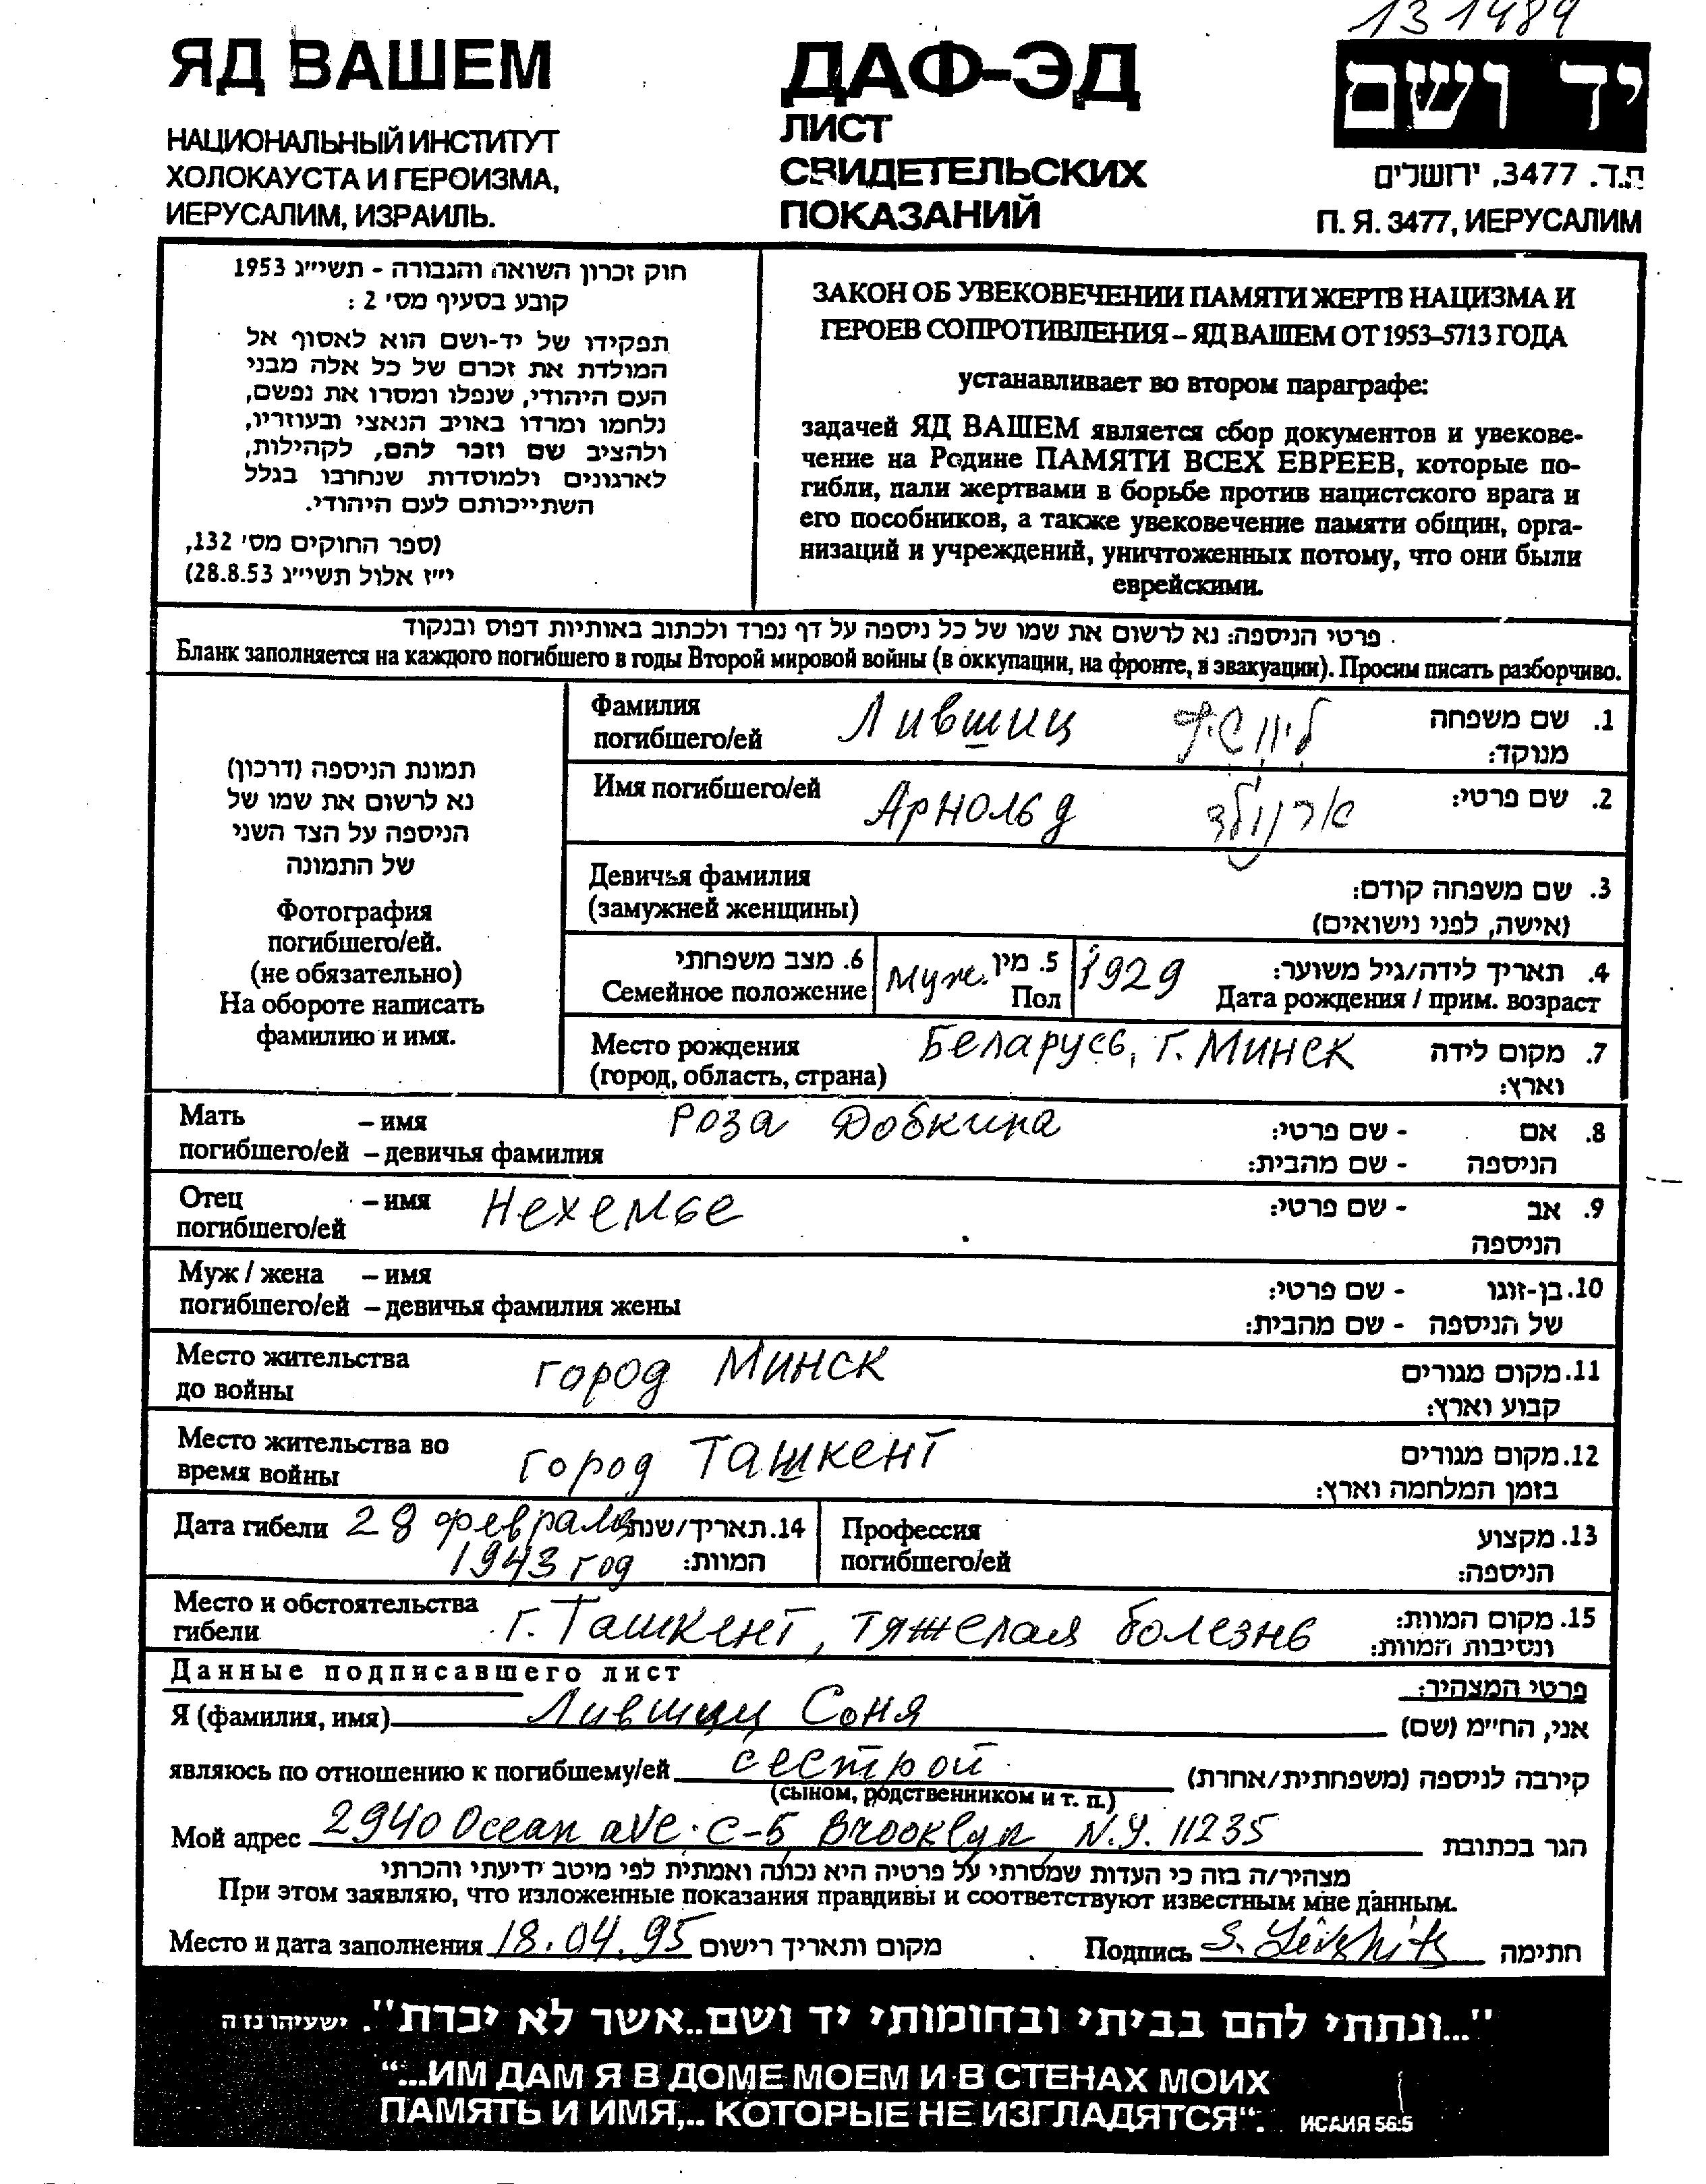 131484
ЯД ВАШЕМ
НАЦИОНАЛЬНЫЙ ИНСТИТУТ
ХОЛОКАУСТА И ГЕРОИЗМА,
ИЕРУСАЛИМ, ИЗРАИЛЬ.
ДАФ-ЭД
ЛИСТ
СВИДЕТЕЛЬСКИХ
ПОКАЗАНИЙ
יד ושם
ת.ד. 3477, ירושלים
П. Я. 3477, ИЕРУСАЛИМ
חוק זכרון השואה והגבורה - תשי״ג 1953
קובע בסעיף מס׳ 2 :
תפקידו של יד-ושם הוא לאסוף אל
המולדת את זכרם של כל אלה מבני
העם היהודי, שנפלו ומסרו את נפשם,
נלחמו ומרדו באויב הנאצי ובעוזריו,
ולהציב שם וזכר להם, לקהילות,
לארגונים ולמוסדות שנחרבו בגלל
השתייכותם לעם היהודי.
(ספר החוקים מס׳ 132,
י״ז אלול תשי״ג 28.8.53)
ЗАКОН ОБ УВЕКОВЕЧЕНИИ ПАМЯТИ ЖЕРТВ НАЦИЗМА И
ГЕРОЕВ СОПРОТИВЛЕНИЯ – ЯД ВАШЕМ ОТ 1953–5713 ГОДА
устанавливает во втором параграфе:
задачей ЯД ВАШЕМ является сбор документов и увекове-
чение на Родине ПАМЯТИ ВСЕХ ЕВРЕЕВ, которые по-
гибли, пали жертвами в борьбе против нацистского врага и
его пособников, а также увековечение памяти общин, орга-
низаций и учреждений, уничтоженных потому, что они были
еврейскими.
פרטי הניספה: נא לרשום את שמו של כל ניספה על דף נפרד ולכתוב באותיות דפוס ובנקוד
Бланк заполняется на каждого погибшего в годы Второй мировой войны (в оккупации, на фронте, в эвакуации). Просим писать разборчиво.
תמונת הניספה (דרכון)
נא לרשום את שמו של
הניספה על הצד השני
של התמונה
Фотография
погибшего/ей.
(не обязательно)
На обороте написать
фамилию и имя.
Фамилия Лившиц ליװשיץ 1. שם משפחה
погибшего/ей מנוקד:
Имя погибшего/ей Арнольд ארנולד 2. שם פרטי:
Девичья фамилия 3. שם משפחה קודם:
(замужней женщины) (אישה, לפני נישואים)
6. מצב משפחתי 5. מין 4. תאריך לידה/גיל משוער:
Семейное положение Муж. Пол 1929 Дата рождения / прим. возраст
Место рождения Беларусь, г. Минск 7. מקום לידה
(город, область, страна) וארץ:
Мать – имя Роза Добкина 8. אם - שם פרטי:
погибшего/ей – девичья фамилия הניספה - שם מהבית:
Отец – имя Нехемье 9. אב - שם פרטי:
погибшего/ей הניספה
Муж / жена – имя 10. בן-זוגו - שם פרטי:
погибшего/ей – девичья фамилия жены של הניספה - שם מהבית:
Место жительства город Минск 11. מקום מגורים
до войны קבוע וארץ:
Место жительства во город Ташкент 12. מקום מגורים
время войны בזמן המלחמה וארץ:
Дата гибели 28 февраля 14. תאריך/שנת Профессия 13. מקצוע
1943 год המוות: погибшего/ей הניספה:
Место и обстоятельства г. Ташкент, тяжелая болезнь 15. מקום המוות:
гибели ונסיבות המוות:
Данные подписавшего лист פרטי המצהיר:
Я (фамилия, имя) Лившиц Соня אני, הח״מ (שם)
являюсь по отношению к погибшему/ей сестрой קירבה לניספה (משפחתית/אחרת)
(сыном, родственником и т. п.)
Мой адрес 2940 Ocean ave. C-5 Brooklyn N.Y. 11235 הגר בכתובת
מצהיר/ה בזה כי העדות שמסרתי על פרטיה היא נכונה ואמתית לפי מיטב ידיעתי והכרתי
При этом заявляю, что изложенные показания правдивы и соответствуют известным мне данным.
Место и дата заполнения 18.04.95 מקום ותאריך רישום Подпись S. Livshits חתימה
"...ונתתי להם בביתי ובחומותי יד ושם..אשר לא יכרת". ישעיהו נז ה
“...ИМ ДАМ Я В ДОМЕ МОЕМ И В СТЕНАХ МОИХ
ПАМЯТЬ И ИМЯ,.. КОТОРЫЕ НЕ ИЗГЛАДЯТСЯ“. ИСАИЯ 56:5